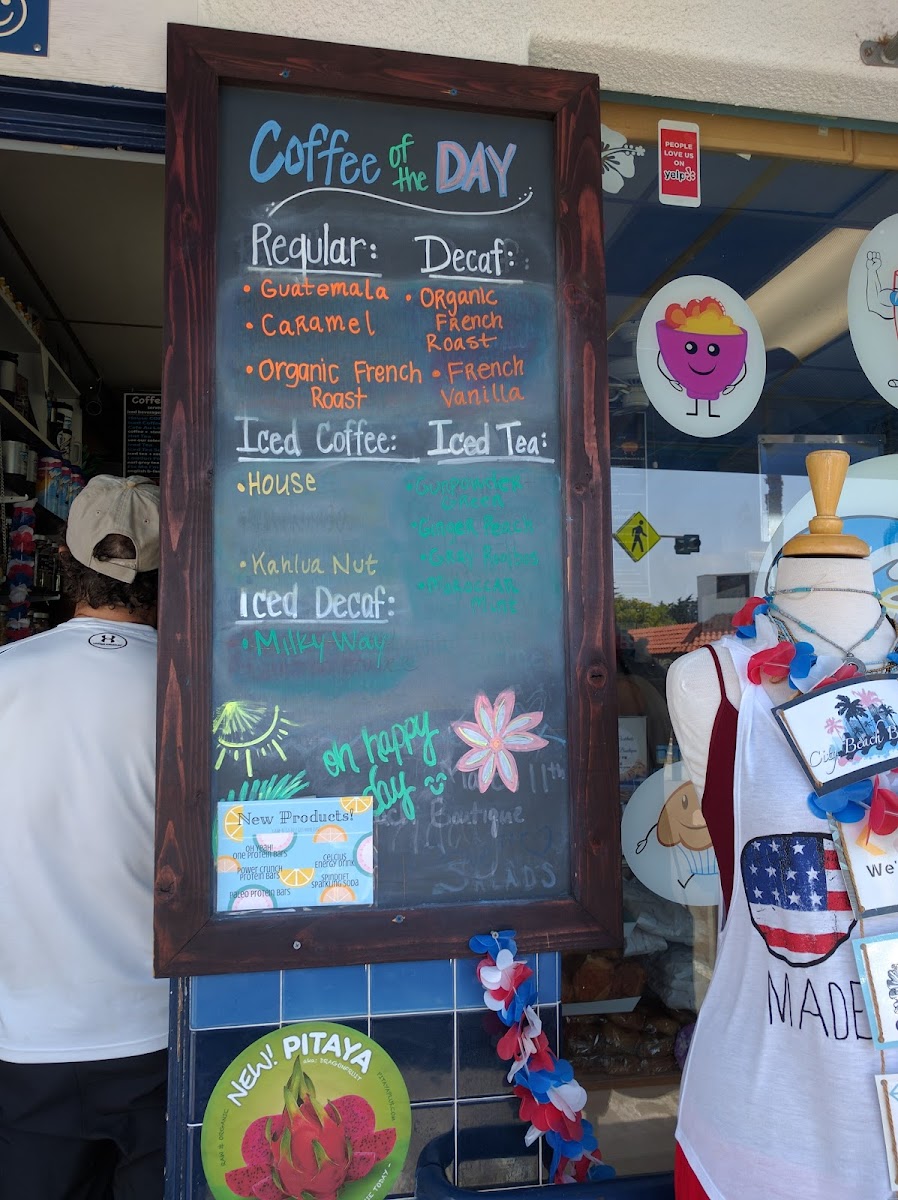 Coffee of the DAY
Regular:
• Guatemala
• Caramel
• Organic French
Roast
Decaf:
• Organic
French
Roast
• French
Vanilla
Iced Coffee:
• House
• Kahlua Nut
Iced Decaf:
• Milky Way
Iced Tea:
• Ginger Peach
oh happy
day
11th
Boutique
SALADS
New Products!
OH YEAH!
ONE PROTEIN BARS
POWER CRUNCH
PROTEIN BARS
PALEO PROTEIN BARS
CELCIUS
ENERGY DRINK
SPINDRIFT
SPARKLING SODA
NEW! PITAYA
DRAGONFRUIT
PEOPLE
LOVE US
ON
yelp
Coffee
City Beach B
We'
MADE